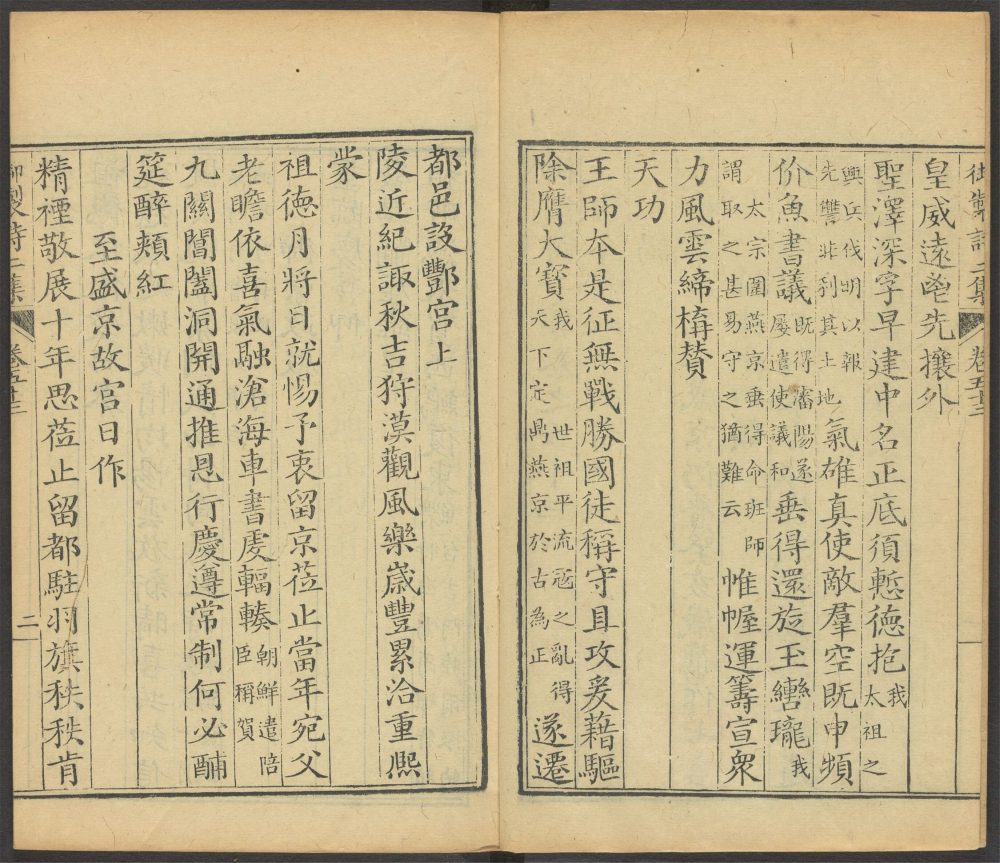 御製詩二集 卷五十三
皇威遠鬯先攘外
聖澤深孚早建中名正底須慙德抱我太祖之
興兵伐明以報先讐非利其土地氣雄真使敵羣空既申頻
价魚書議既得瀋陽遂屢遣使議和垂得還旋玉轡瓏我
太宗圍燕京垂得命班師謂取之甚易守之猶難云帷幄運籌宣衆
力風雲締構贊
天功
王師本是征無戰勝國徒稱守且攻爰藉驅
除膺大寶我世祖平流寇之亂得天下定鼎燕京於古為正遂遷
都邑設酆宮上
陵近紀諏秋吉狩漠觀風樂歲豐累洽重熈
蒙
祖德月將日就惕予衷留京莅止當年宛父
老瞻依喜氣融滄海車書處輻輳朝鮮遣陪臣稱賀
九關閶闔洞開通推恩行慶遵常制何必酺
筵醉頰紅
至盛京故宮日作
精禋敬展十年思莅止留都駐羽旗秩秩肯
御製詩二集 卷五十三 二